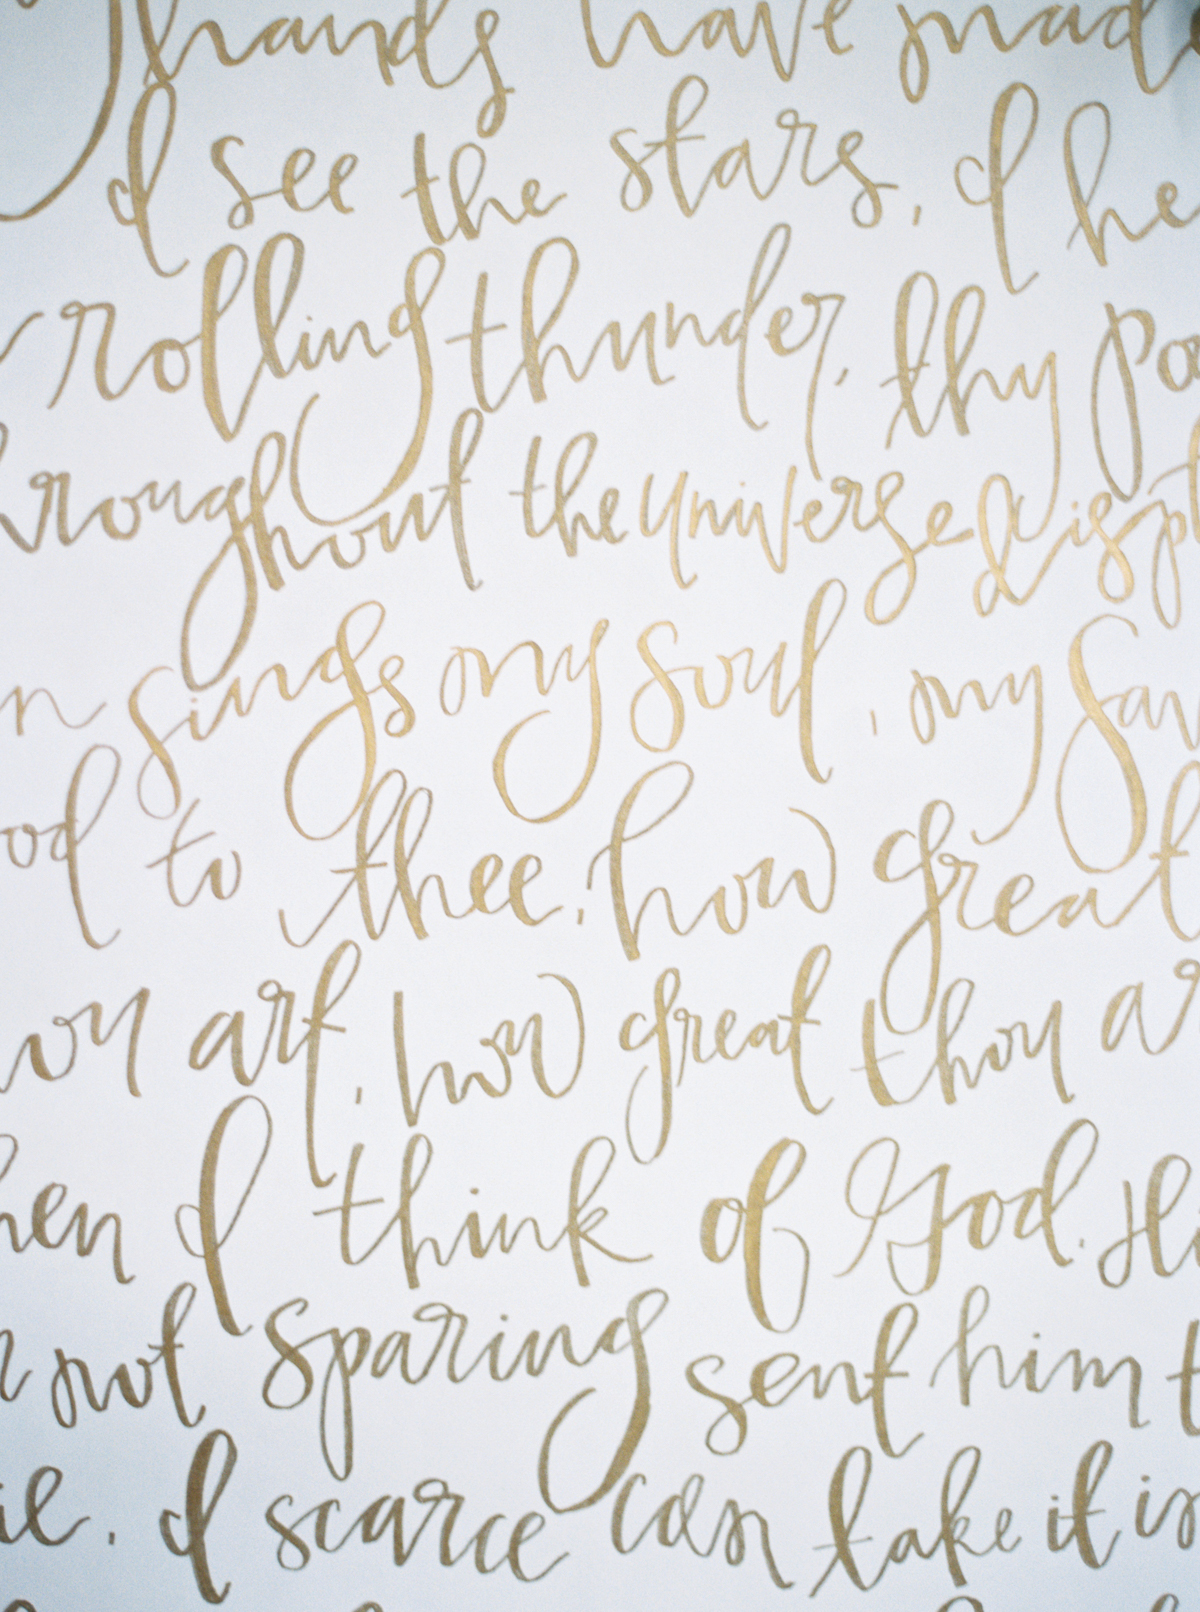 hands have mad
I see the stars, I he
rolling thunder, thy po
hroughout the universe displ
n sings my soul, my Sav
od to thee, how great
ou art, how great thou ar
hen I think of God, Hi
n not sparing sent him t
ie, I scarce can take it in